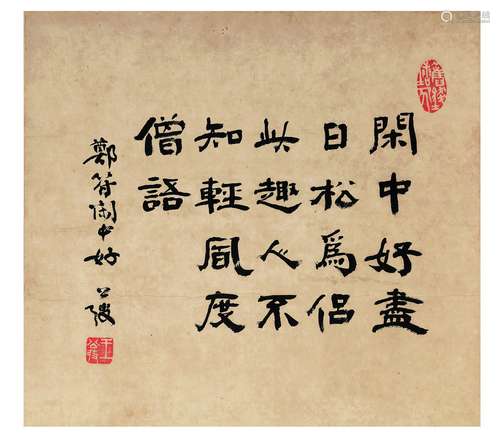 閑中好盡
日松為侶
此趣人不
知輕風度
僧語
鄭符閑中好